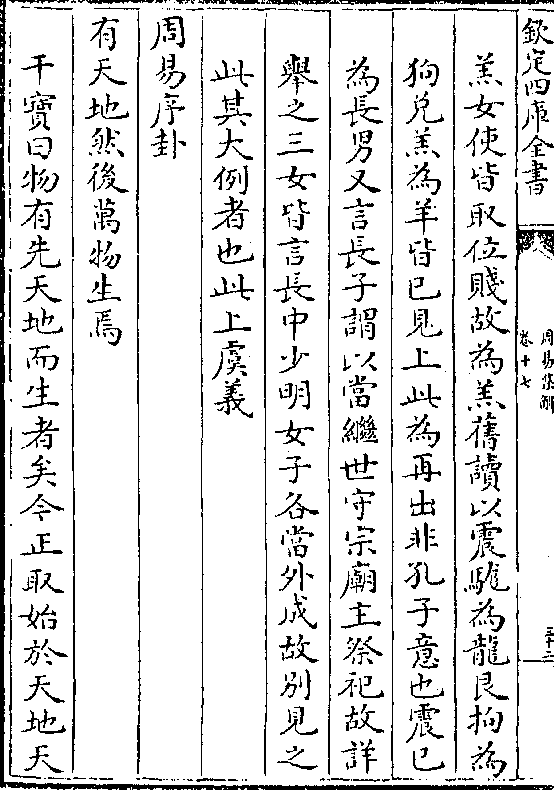 欽定四庫全書
周易集解
卷十七
羔女使皆取位賤故為羔舊讀以震駹為龍艮拘為
狗兌羔為羊皆已見上此為再出非孔子意也震已
為長男又言長子謂以當繼世守宗廟主祭祀故詳
舉之三女皆言長中少明女子各當外成故別見之
此其大例者也此上虞義
周易序卦
有天地然後萬物生焉
干寶曰物有先天地而生者矣今正取始於天地天